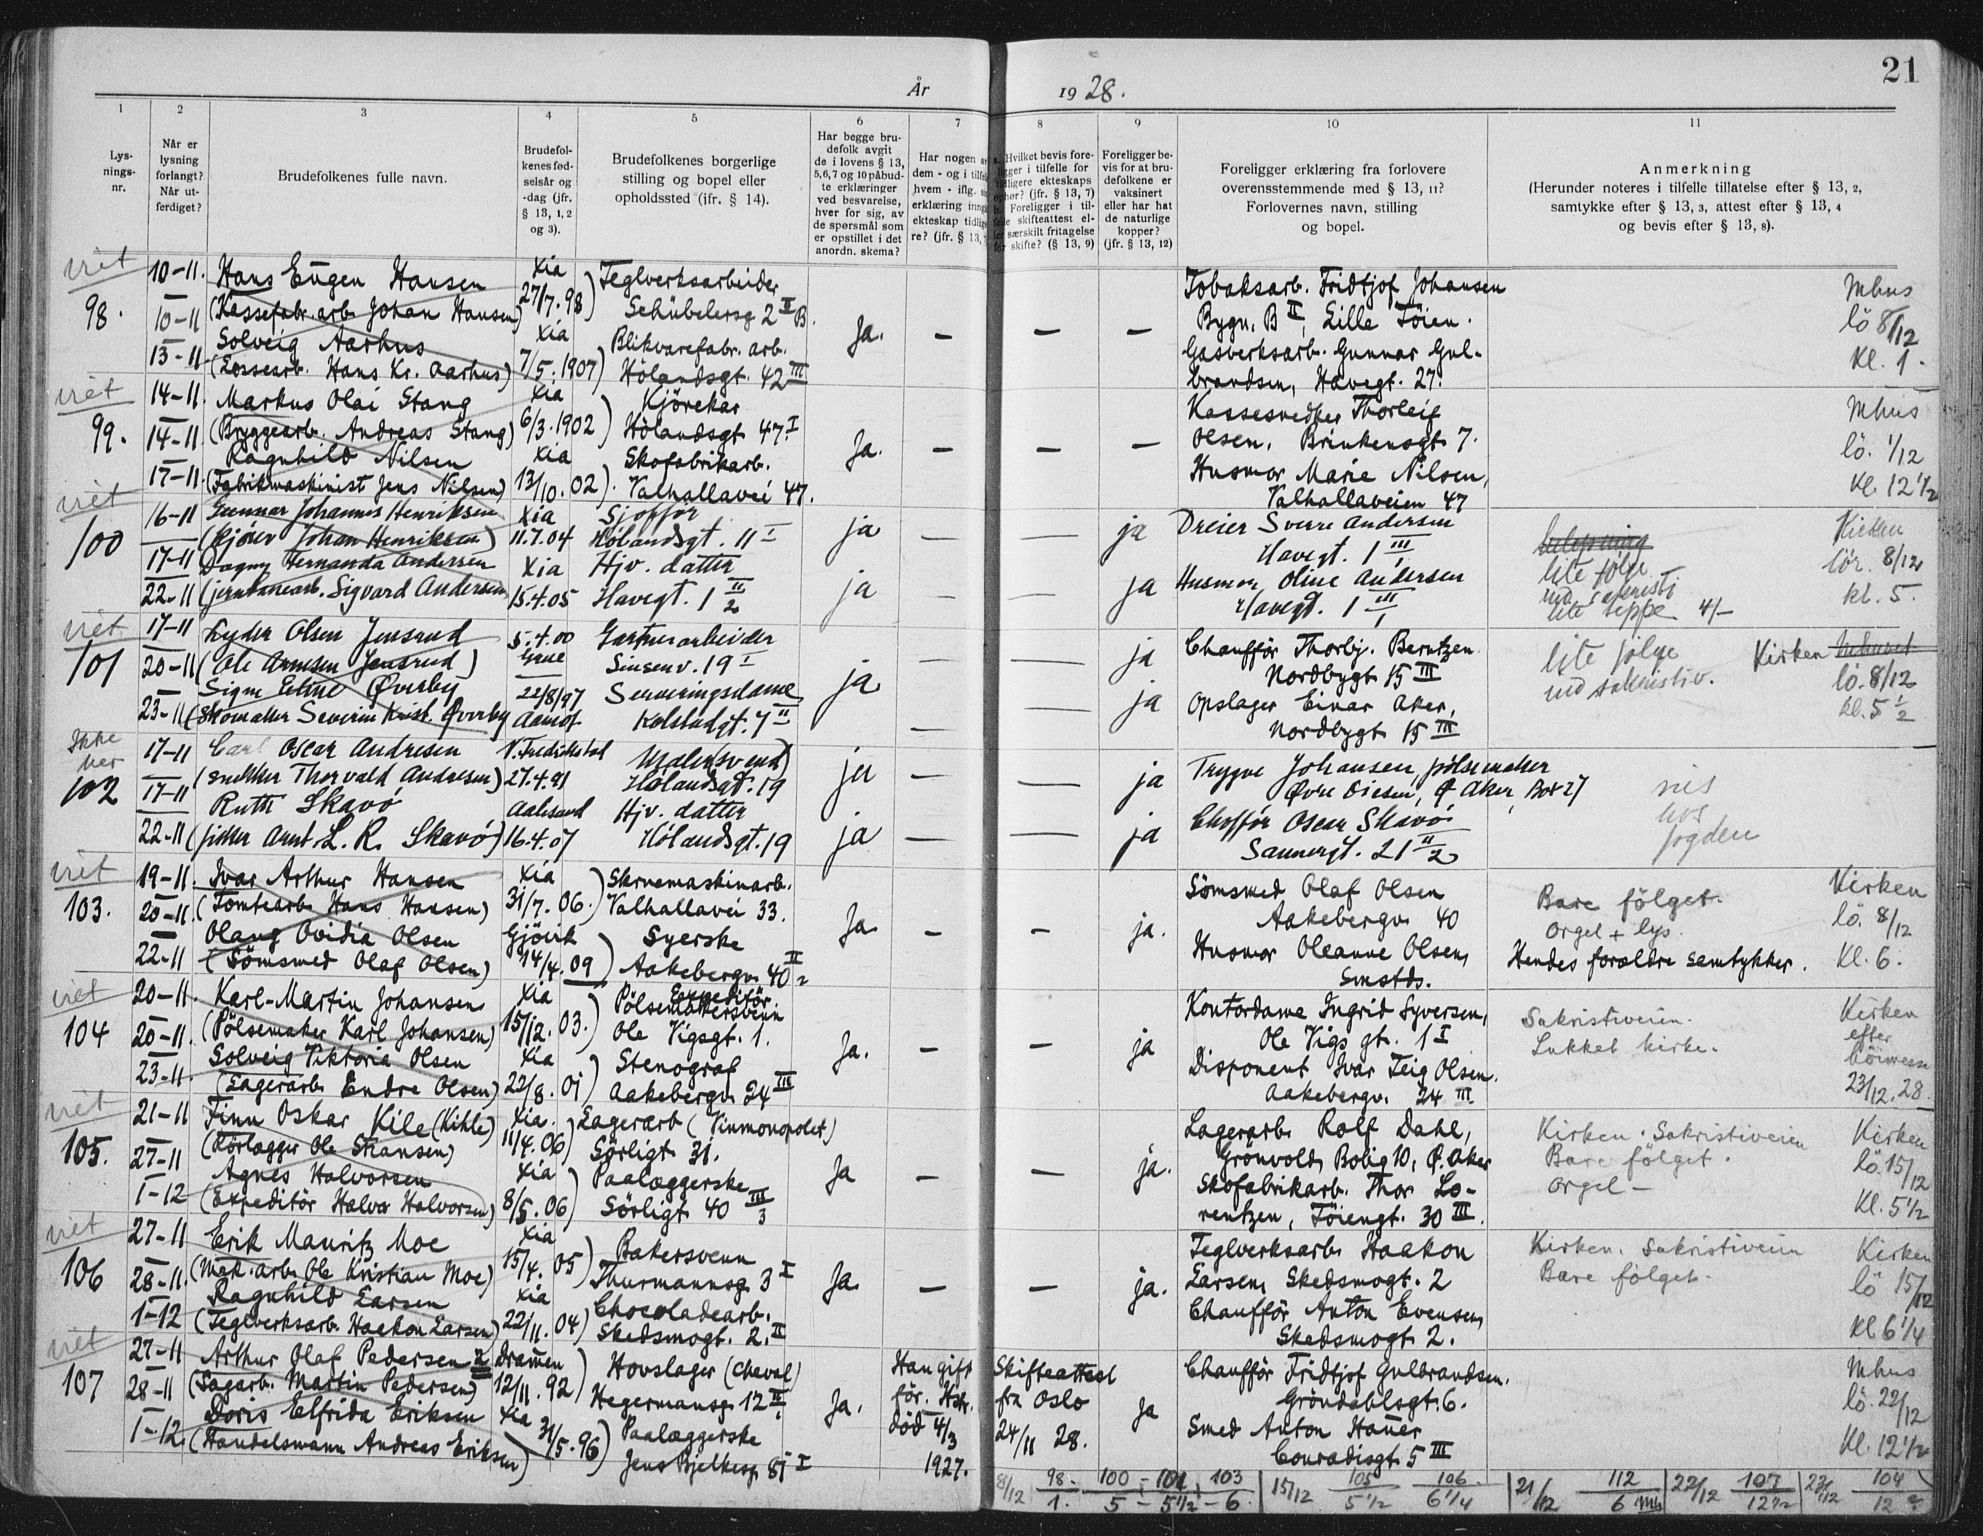 21
År
1928.
1
2
3
4
5
6
7
8
9
10
11
Lys-
nings-
nr.
Når er
lysning
forlangt?
Når ut-
ferdiget?
Brudefolkenes fulle navn.
Brudefol-
kenes fød-
selsår og
-dag (jfr.
§ 13, 1, 2
og 3).
Brudefolkenes borgerlige
stilling og bopel eller
opholdssted (jfr. § 14).
Har begge bru-
defolk avgit
de i lovens § 13,
5,6,7 og 10 påbud-
te erklæringer
ved besvarelse,
hver for sig, av
de spørsmål som
er opstillet i det
anordn. skema?
Har nogen av
dem - og i tilfelle
hvem - iflg.
erklæring inngått
ekteskap tidlige-
re? (jfr. § 13,
a. Hvilket bevis fore-
ligger i tilfelle for
tidligere ekteskaps
ophør? (jfr. § 13, 7)
b. Foreligger i til-
felle skifteattest el-
ler særskilt fritagelse
for skifte? (§ 13, 9)
Foreligger be-
vis for at bru-
defolkene er
vaksinert
eller har hat
de naturlige
kopper?
(jfr. § 13, 12)
Foreligger erklæring fra forlovere
overensstemmende med § 13, 11?
Forlovernes navn, stilling
og bopel.
Anmerkning
(Herunder noteres i tilfelle tillatelse efter § 13, 2,
samtykke efter § 13, 3, attest efter § 13, 4
og bevis efter § 13, 8).
viet
98.
10-11.
10-11
15-11
Hans Eugen Hansen
(Kassefabr.arb. Johan Hansen)
Solveig Aarhus
(Lossearb. Hans Kr. Aarhus)
Xia
27/7.98)
Xia
7/5.1907)
Teglverksarbeider
Schübelersg 2 II B.
Blikvarefabr. arb.
Hølandsgt. 42 III
Ja.
—
—
—
Tobaksarb. Fridtjof Johansen
Bygn. B II, Lille Tøien.
Gasverksarb. Gunnar Gul-
brandsen, Havegt. 27.
Mhus
lö 8/12
Kl. 1.
viet
99.
14-11.
14-11
17-11
Markus Olai Stang
(Bryggearb. Andreas Stang)
Ragnhild Nilsen
(Fabrikmaskinist Jens Nilsen)
Xia
6/3.1902)
Xia
13/10.02).
Kjörekar
Hölandsgt 47 I
Skofabrikarb.
Valhallavei 47.
Ja.
—
—
—
Kassesnedker Thorleif
Olsen, Brinkensgt 7.
Husmor Marie Nilsen,
Valhallaveien 47
Mhus
lö. 1/12
Kl. 12 1/2
viet
100
16-11
17-11
22-11
Gunnar Johannes Henriksen
(kjörer Johan Henriksen)
Dagny Hermanda Andersen
(jernbanearb. Sigvard Andersen
Xia
11.7.04
Xia
15.4.05
Sjofför
Hølandsgt. 11 I
Hjv. datter
Havegt. 1 II/2
ja
ja
—
—
—
—
ja
ja
Dreier Sverre Andersen
Havegt. 1 III
Husmor Oline Andersen
Havegt. 1 III
lite følge
ind sakristi
lite teppe 4/-
Kirken
lör. 8/12
kl. 5.
viet
101
17-11
20-11
23-11
Lyder Olsen Jensrud
(Ole Arnesen Jensrud)
Signe Eline Øverby
(Skomaker Severin Krist. Øverby
5.4.00
Grue
22/8/97
Gartnerarbeider
Sinsenv. 19 I
Serveringsdame
Kolstadgt. 7 II
ja
—
—
—
—
ja
ja
Chauffør Thorbj. Berntzen
Nordbygt 15 III
Opslager Einar Aker,
Nordbygt 15 III
lite følge
ind sakristiv.
Kirken
lö. 8/12
kl. 5 1/2
Ikke
her
102
17-11
17-11
22-11
Carl Oscar Andresen
(snekker Thorvald Andresen)
Ruth Skavø
(fisker Arnt L. R. Skavø)
V. Fredrikstad
27.4.91
Aalesund
16.4.07
Maler(svend)
Hølandsgt. 19
Hjv. datter
Hølandsgt. 19
ja
ja
—
—
—
—
ja
ja
Trygve Johansen, pølsemaker
Øvre Disen, Ø Aker, Box 27
Choffør Oscar Skavø
Sannergt. 21 II/2
vies
hos
fogden
viet
103.
19-11.
20-11.
22-11
Ivar Arthur Hansen
(Tomtearb Hans Hansen)
Olaug Ovidia Olsen
(Sömsmed Olaf Olsen)
Xia
31/7.06.)
Gjövik
14/4.09)
Skruemaskinarb.
Valhallavei 33.
Syerske
Aakebergv. 40 II/2
Ja.
—
—
ja.
Sömsmed Olaf Olsen
Aakebergv. 40
Husmor Oleanne Olsen,
Smstds.
Bare fölget.
Orgel + lys.
Hendes foreldre samtykker.
Kirken
lö. 8/12
Kl. 6.
viet
104
20-11.
20-11.
23-11.
Karl-Martin Johansen
(Pölsemaker Karl Johansen)
Solveig Viktoria Olsen
(Lagerarb. Endre Olsen)
Xia
15/12.03.)
Xia
22/8.01)
Expeditör.
Pölsemakersvenn
Ole Vigsgt. 1.
Stenograf
Aakebergv. 24 III
Ja.
—
—
ja
Kontordame Ingrid Syversen,
Ole Vigs gt. 1 I
Disponent Ivar Teig Olsen.
Aakebergv. 24 III
Sakristiveien.
Lukket kirke.
Kirken
efter
höimesse
23/12.28.
viet
105.
21-11
27-11
1-12
Finn Oskar Kile (Kihle)
(Rörlægger Ole Stransen)
Agnes Halvorsen
(Expeditör Halvor Halvorsen)
Xia.
11/4.06)
Xia
8/5.06)
Lagerarb (Vinmonopolet)
Sörligt 31.
Paalæggerske
Sörligt 40 III/3
Ja
—
—
ja.
Lagerarb. Rolf Dahl,
Grönvold, Bolig 10, Ø. Aker
Skofabrikarb. Thor Lo-
rentzen, Töiengt. 30 III.
Kirken. Sakristiveien
Bare fölget.
Orgel —
Kirken
lö. 15/12
Kl. 5 1/2
viet
106
27-11
28-11.
1-12
Erik Mauritz Moe
(Mek. arb. Ole Kristian Moe)
Ragnhild Larsen
(Teglverksarb. Haakon Larsen)
Xia
15/4.05)
Xia
22/11.04)
Bakersvenn
Thurmannsg. 3 I
Chocoladearb.
Skedsmogt. 2. II
Ja.
—
—
ja.
Teglverksarb. Haakon
Larsen, Skedsmogt. 2
Chaufför Anton Evensen,
Skedsmogt 2.
Kirken. Sakristiveien
Bare fölget.
Kirken
lö 15/12
Kl 6 1/4
viet
107
27-11
28-11
1-12
Arthur Olaf Pedersen 2
(Sagarb. Martin Pedersen)
Doris Elfrida Eriksen
(Handelsmann Andreas Eriksen)
Drammen
12/11.92)
Xia
31/5.96)
Hovslager (Cheval)
Hegermansg. 12 II
Paalæggerske
Jens Bjelkesg. 81 I
Ja.
Han gift
för. Hstr.
död 4/3
1927.
Skifteattest
fra Oslo
24/11 28.
ja
Chauffør Fridtjof Gulbrandsen.
Gröndahlsgt. 6.
Smed Anton Hauer
Conradisgt 5 III
Mhus
lö. 22/12
Kl. 12 1/2
8/12 98./1. 100/5 - 101/5 1/2 - 103/6 15/12 105/5 1/2 106/6 1/4 21/12 112/6 Mhs 22/12 107/12 1/2 23/12 104/12